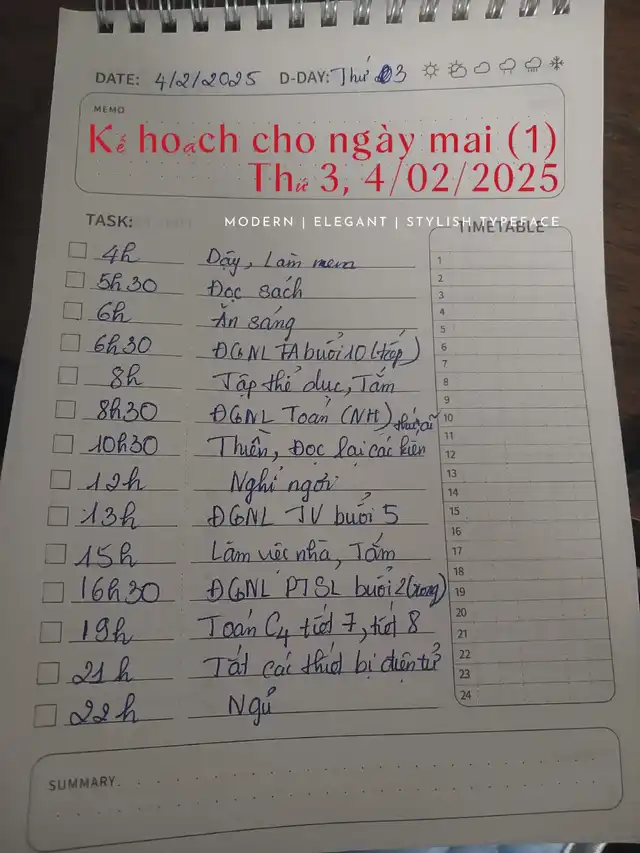 DATE: 4/2/2025 D-DAY: Thứ 3
MEMO
Kế hoạch cho ngày mai (1)
Thứ 3, 4/02/2025
MODERN | ELEGANT | STYLISH TYPEFACE
TASK:
TIMETABLE
4h Dậy, Làm mem
5h30 Đọc sách
6h Ăn sáng
6h30 ĐGNL TA buổi 10 (tiếp)
8h Tập thể dục, Tắm
8h30 ĐGNL Toán (NH)
10h30 Thiền, Đọc lại các kiến thức cũ
12h Nghỉ ngơi
13h ĐGNL TV buổi 5
15h Làm việc nhà, Tắm
16h30 ĐGNL PTSL buổi 2 (xong)
19h Toán C4 tiết 7, tiết 8
21h Tắt các thiết bị điện tử
22h Ngủ
1
2
3
4
5
6
7
8
9
10
11
12
13
14
15
16
17
18
19
20
21
22
23
24
SUMMARY